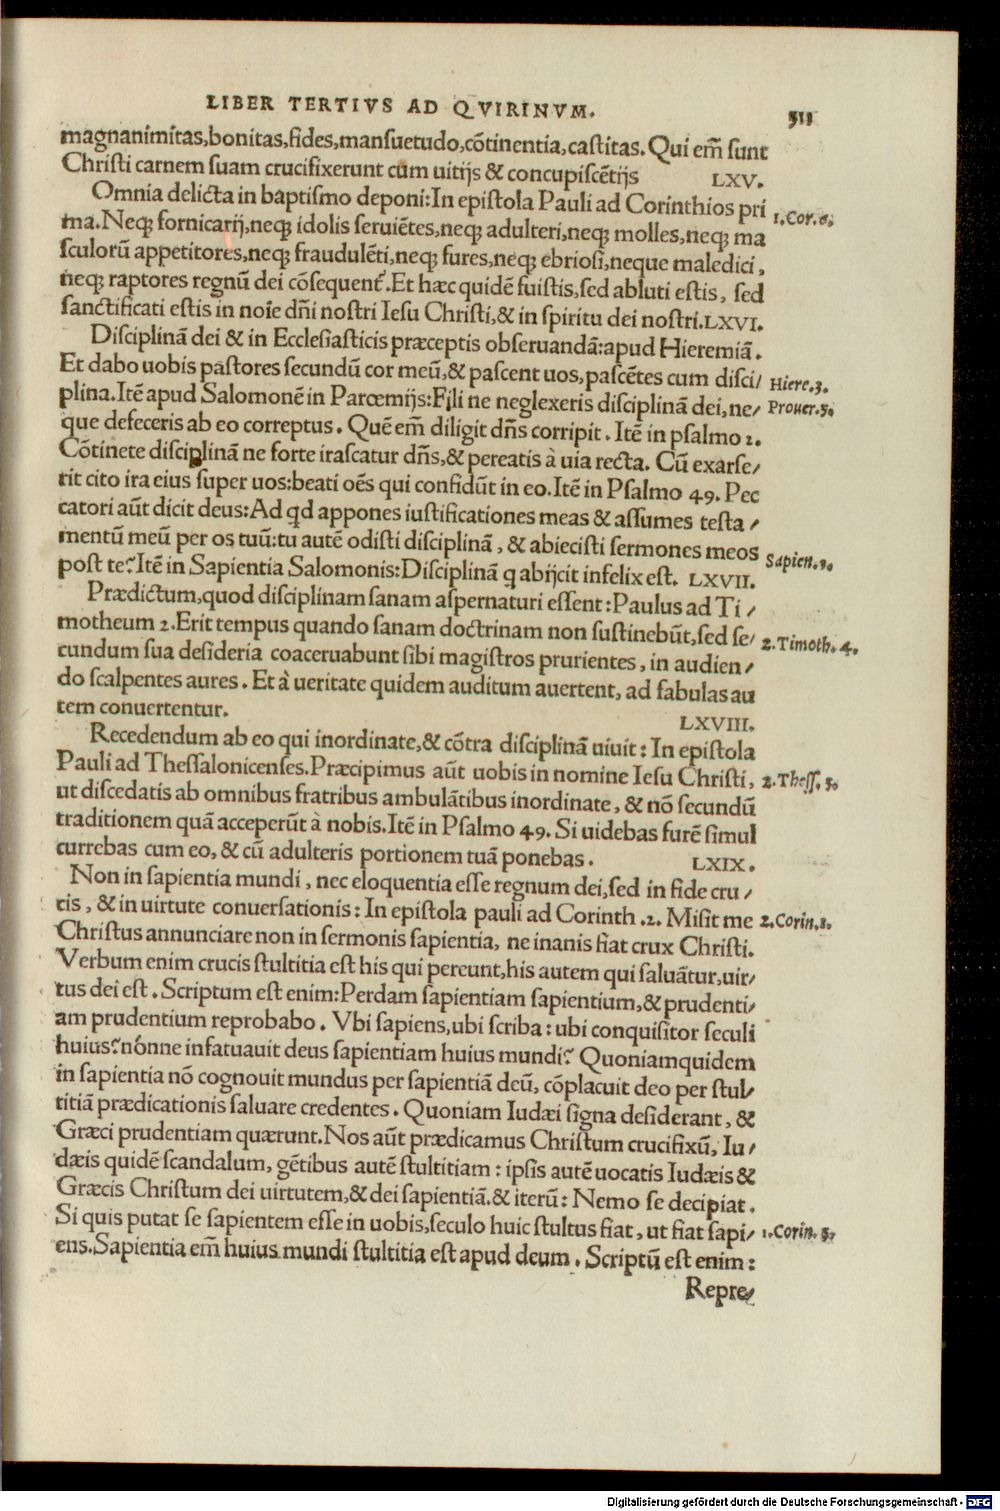 LIBER TERTIVS AD QVIRINVM. 311
magnanimitas,bonitas,fides,mansuetudo,cõtinentia,castitas. Qui em̃ sunt
Christi carnem suam crucifixerunt cum uitijs & concupiscẽtijs LXV.
Omnia delicta in baptismo deponi:In epistola Pauli ad Corinthios pri 1.Cor.6.
ma.Neqꝫ fornicarij,neqꝫ idolis seruiẽtes,neqꝫ adulteri,neqꝫ molles,neqꝫ ma
sculorũ appetitores,neqꝫ fraudulẽti,neqꝫ fures,neqꝫ ebriosi,neque maledici,
neqꝫ raptores regnũ dei cõsequent̃.Et hæc quidẽ fuistis,sed abluti estis, sed
sanctificati estis in noie dñi nostri Iesu Christi,& in spiritu dei nostri.LXVI.
Disciplinã dei & in Ecclesiasticis præceptis obseruandã:apud Hieremiã.
Et dabo uobis pastores secundũ cor meũ,& pascent uos,pascẽtes cum disci/ Hiere.3.
plina.Itẽ apud Salomonẽ in Parœmijs:Fili ne neglexeris disciplinã dei,ne/ Prouer.3.
que defeceris ab eo correptus. Quẽ em̃ diligit dñs corripit. Itẽ in psalmo 2.
Cõtinete disciplinã ne forte irascatur dñs,& pereatis à uia recta. Cũ exarse/
rit cito ira eius super uos:beati oẽs qui confidũt in eo.Itẽ in Psalmo 49. Pec
catori aũt dicit deus:Ad qd appones iustificationes meas & assumes testa/
mentũ meũ per os tuũ:tu autẽ odisti disciplinã, & abiecisti sermones meos
post te?Itẽ in Sapientia Salomonis:Disciplinã q abijcit infelix est. LXVII. Sapien.3.
Prædictum,quod disciplinam sanam aspernaturi essent:Paulus ad Ti/
motheum 2.Erit tempus quando sanam doctrinam non sustinebũt,sed se/ 2.Timoth.4.
cundum sua desideria coaceruabunt sibi magistros prurientes, in audien/
do scalpentes aures. Et à ueritate quidem auditum auertent, ad fabulas au
tem conuertentur. LXVIII.
Recedendum ab eo qui inordinate,& cõtra disciplinã uiuit: In epistola
Pauli ad Thessalonicenses.Præcipimus aũt uobis in nomine Iesu Christi, 2.Thess.3.
ut discedatis ab omnibus fratribus ambulãtibus inordinate, & nõ secundũ
traditionem quã acceperũt à nobis.Itẽ in Psalmo 49. Si uidebas furẽ simul
currebas cum eo, & cũ adulteris portionem tuã ponebas. LXIX.
Non in sapientia mundi, nec eloquentia esse regnum dei,sed in fide cru/
cis, & in uirtute conuersationis: In epistola pauli ad Corinth.2. Misit me 2.Corin.1.
Christus annunciare non in sermonis sapientia, ne inanis fiat crux Christi.
Verbum enim crucis stultitia est his qui pereunt,his autem qui saluãtur,uir/
tus dei est. Scriptum est enim:Perdam sapientiam sapientium,& prudenti/
am prudentium reprobabo. Vbi sapiens,ubi scriba: ubi conquisitor seculi
huius?nónne infatuauit deus sapientiam huius mundi? Quoniamquidem
in sapientia nõ cognouit mundus per sapientiã deũ, cõplacuit deo per stul/
titiã prædicationis saluare credentes. Quoniam Iudæi signa desiderant, &
Græci prudentiam quærunt.Nos aũt prædicamus Christum crucifixũ, Iu/
dæis quidẽ scandalum, gẽtibus autẽ stultitiam: ipsis autẽ uocatis Iudæis &
Græcis Christum dei uirtutem,& dei sapientiã.& iterũ: Nemo se decipiat.
Si quis putat se sapientem esse in uobis,seculo huic stultus fiat, ut fiat sapi/ 1.Corin.3.
ens.Sapientia em̃ huius mundi stultitia est apud deum. Scriptũ est enim:
Repre/
Digitalisierung gefördert durch die Deutsche Forschungsgemeinschaft - DFG